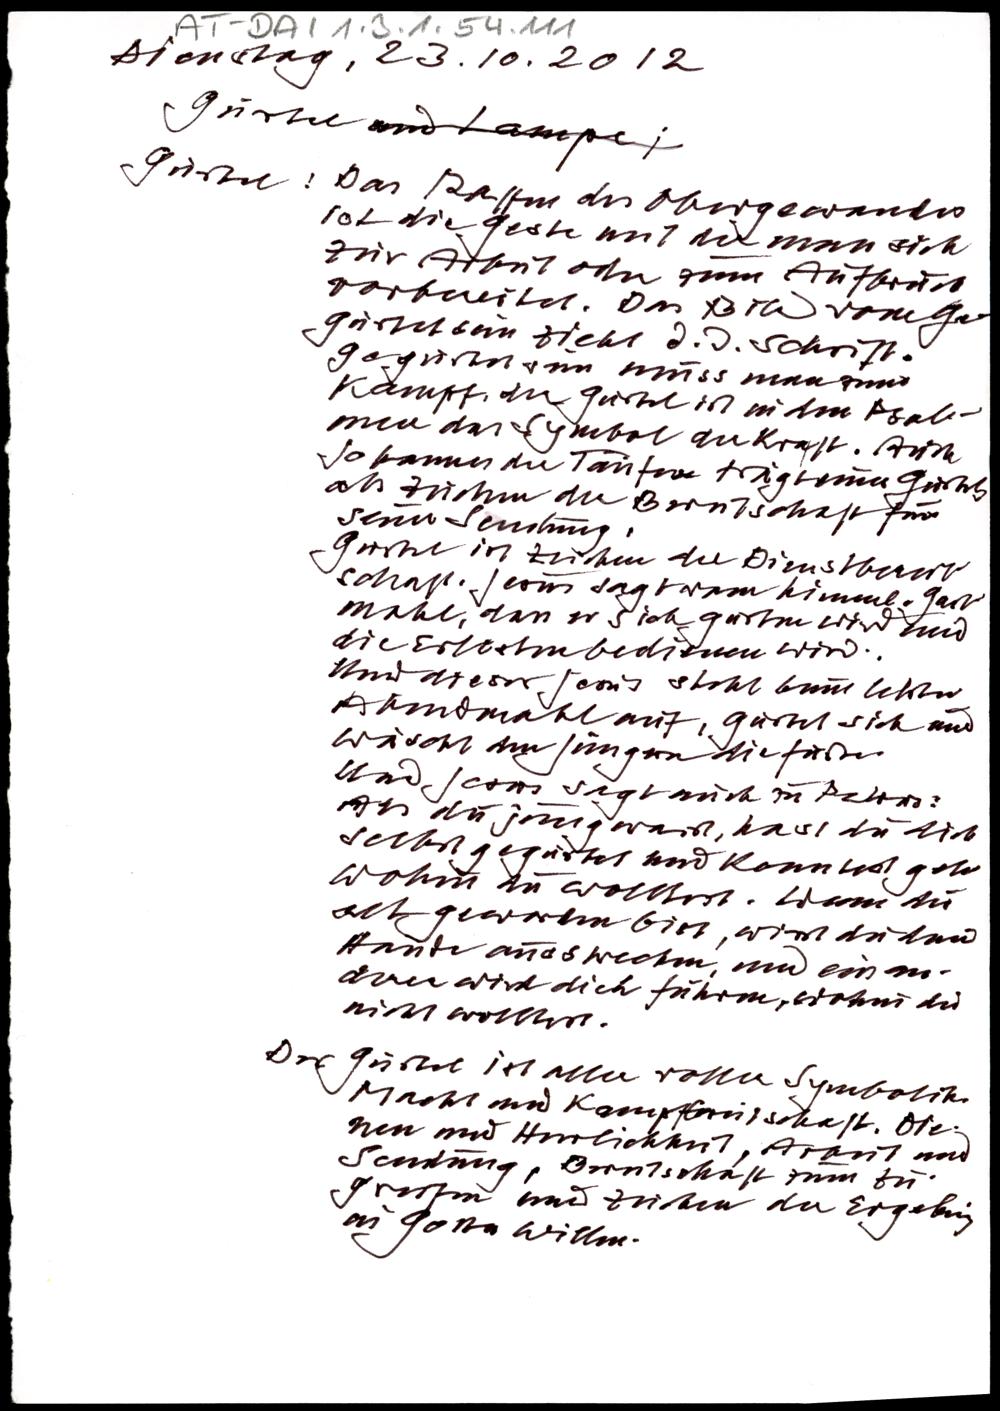 AT-DAI 1.3.1.54.111
Dienstag, 23.10.2012
Gürtel und Lampe;
Gürtel: Das Raffen des Obergewandes
ist die Geste mit der man sich
zur Arbeit oder zum Aufbruch
vorbereitet. Das Bild vom Ge-
gürtetsein zieht d.d. Schrift.
Gegürtet sein muss man zum
Kampf. der Gürtel ist in den Psal-
men das Symbol der Kraft. Auch
Johannes der Täufer trägt einen Gürtel
als Zeichen der Bereitschaft für
seine Sendung.
Gürtel ist Zeichen der Dienstbereit
schaft. Jesus sagt vom himml. Gast-
mahl, dass er sich gürten wird und
die Erlösten bedienen wird.
Und dieser Jesus steht beim letzten
Abendmahl auf, gürtet sich und
wäscht den Jüngern die Füsse.
Und Jesus sagt auch zu Petrus:
Als du jung warst, hast du dich
selbst gegürtet und konntest gehn
wohin du wolltest. Wenn du
alt geworden bist, wirst du deine
Hände ausstrecken, und ein an-
derer wird dich führen, wohin du
nicht wolltest.
Der Gürtel ist aller voller Symbolik.
Macht und Kampfbereitschaft. Die-
nen und Herrlichkeit, Arbeit und
Sendung, Bereitschaft zum Zu-
greifen und Zeichen der Ergebung
in Gottes Willen.